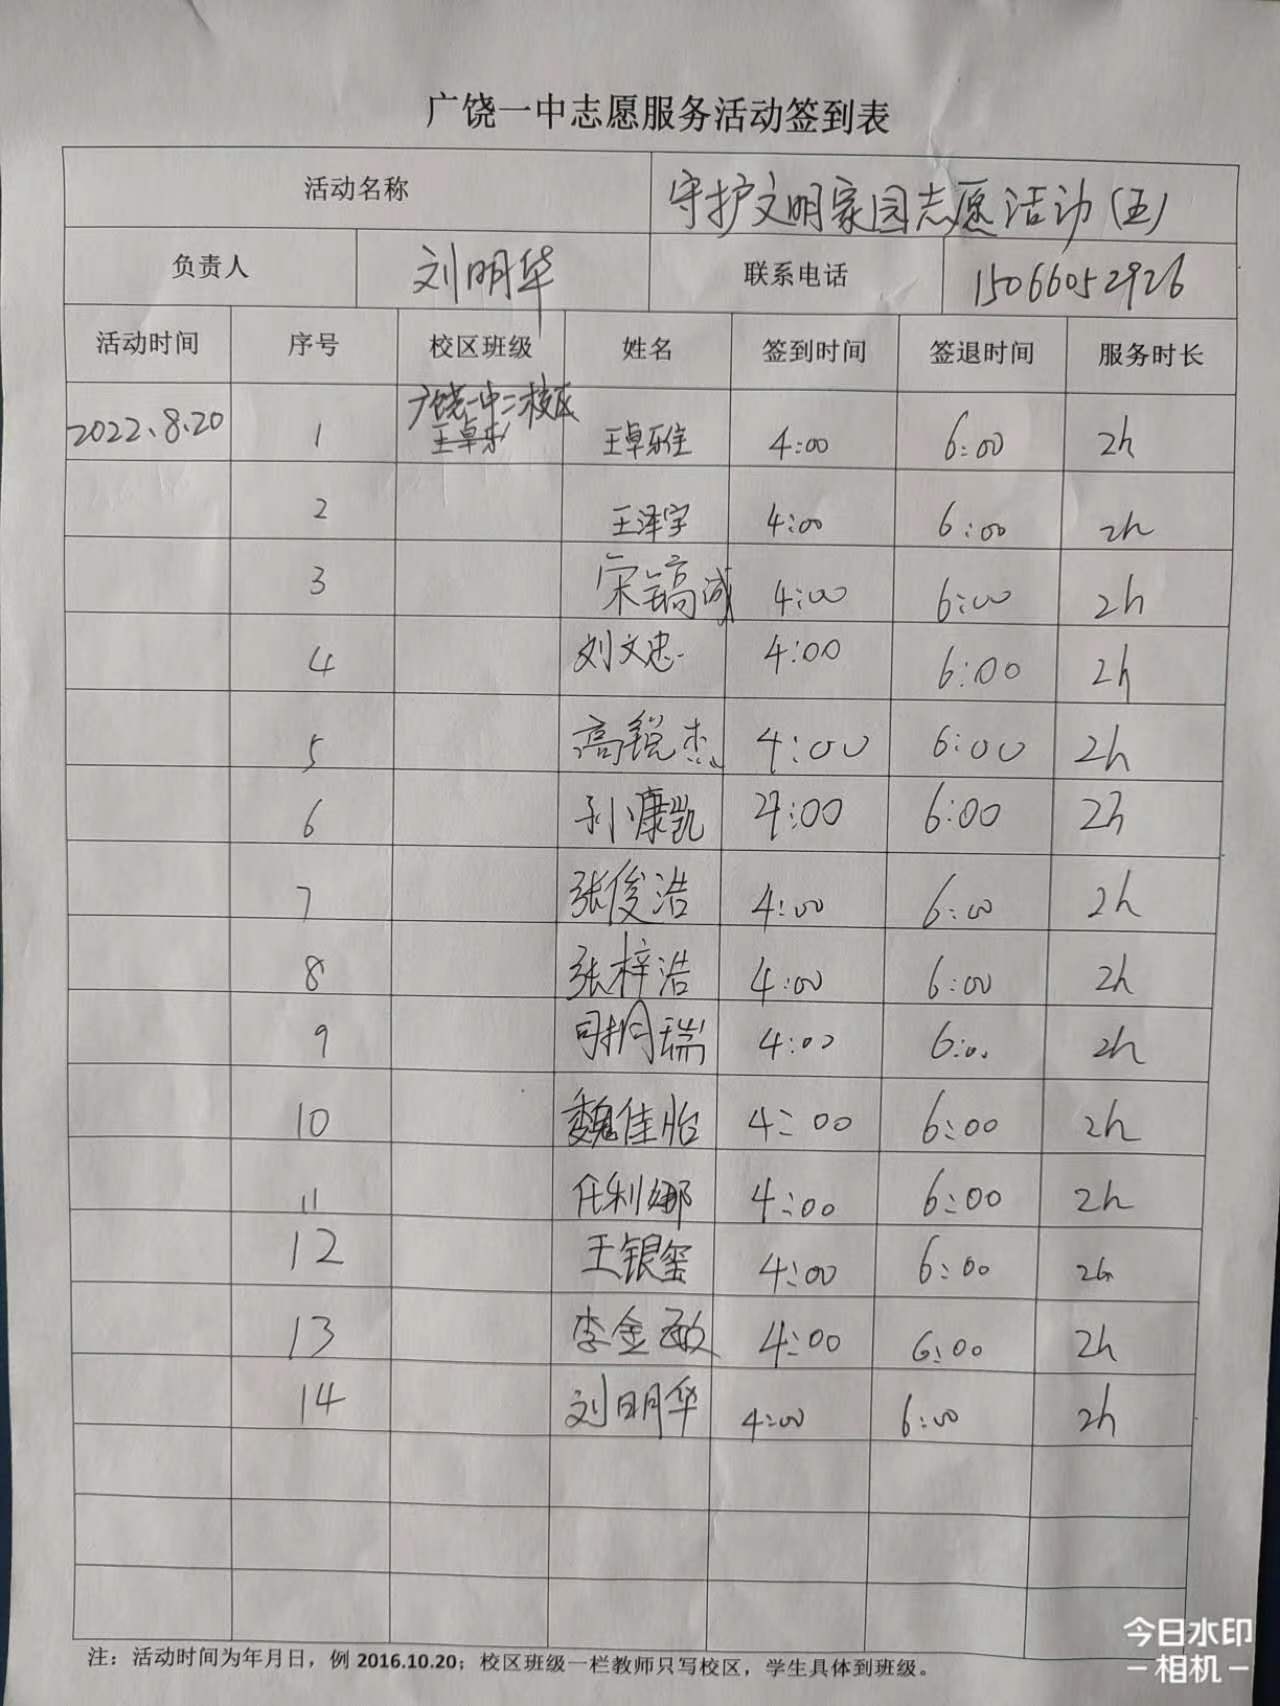 广饶一中志愿服务活动签到表
活动名称 守护文明家园志愿活动(五)
负责人 刘明华 联系电话 15066052926
活动时间 序号 校区班级 姓名 签到时间 签退时间 服务时长
2022、8、20 1 广饶一中二校区 王卓雅 4:00 6:00 2h
2 王泽宇 4:00 6:00 2h
3 宋镐诚 4:00 6:00 2h
4 刘文忠 4:00 6:00 2h
5 高锐杰 4:00 6:00 2h
6 孙康凯 4:00 6:00 2h
7 张俊浩 4:00 6:00 2h
8 张梓浩 4:00 6:00 2h
9 司桐瑞 4:00 6:00 2h
10 魏佳怡 4:00 6:00 2h
11 任利娜 4:00 6:00 2h
12 王银玺 4:00 6:00 2h
13 李金敏 4:00 6:00 2h
14 刘明华 4:00 6:00 2h
注：活动时间为年月日，例 2016.10.20；校区班级一栏教师只写校区，学生具体到班级。
今日水印
相机